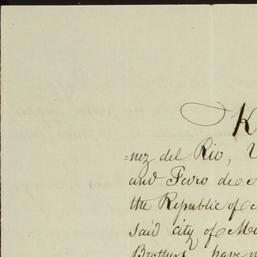 K
=nez del Rio, V
and Fevro de
the Republic of
said city of Me
Brothers, have